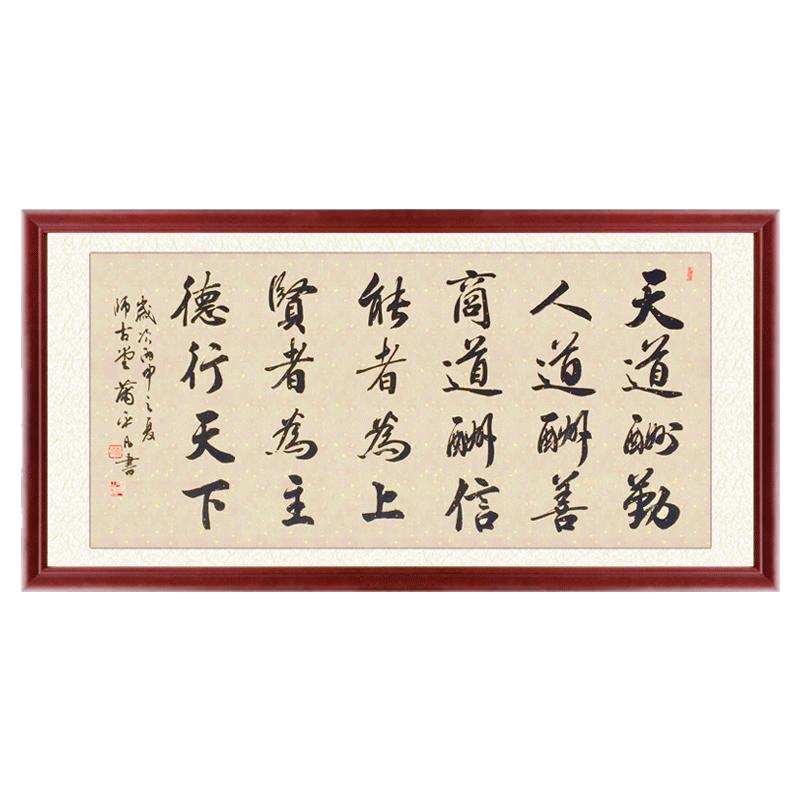 天道酬勤
人道酬善
商道酬信
能者為上
賢者為主
德行天下
歲次丙申之夏
師古堂蒲平凡書